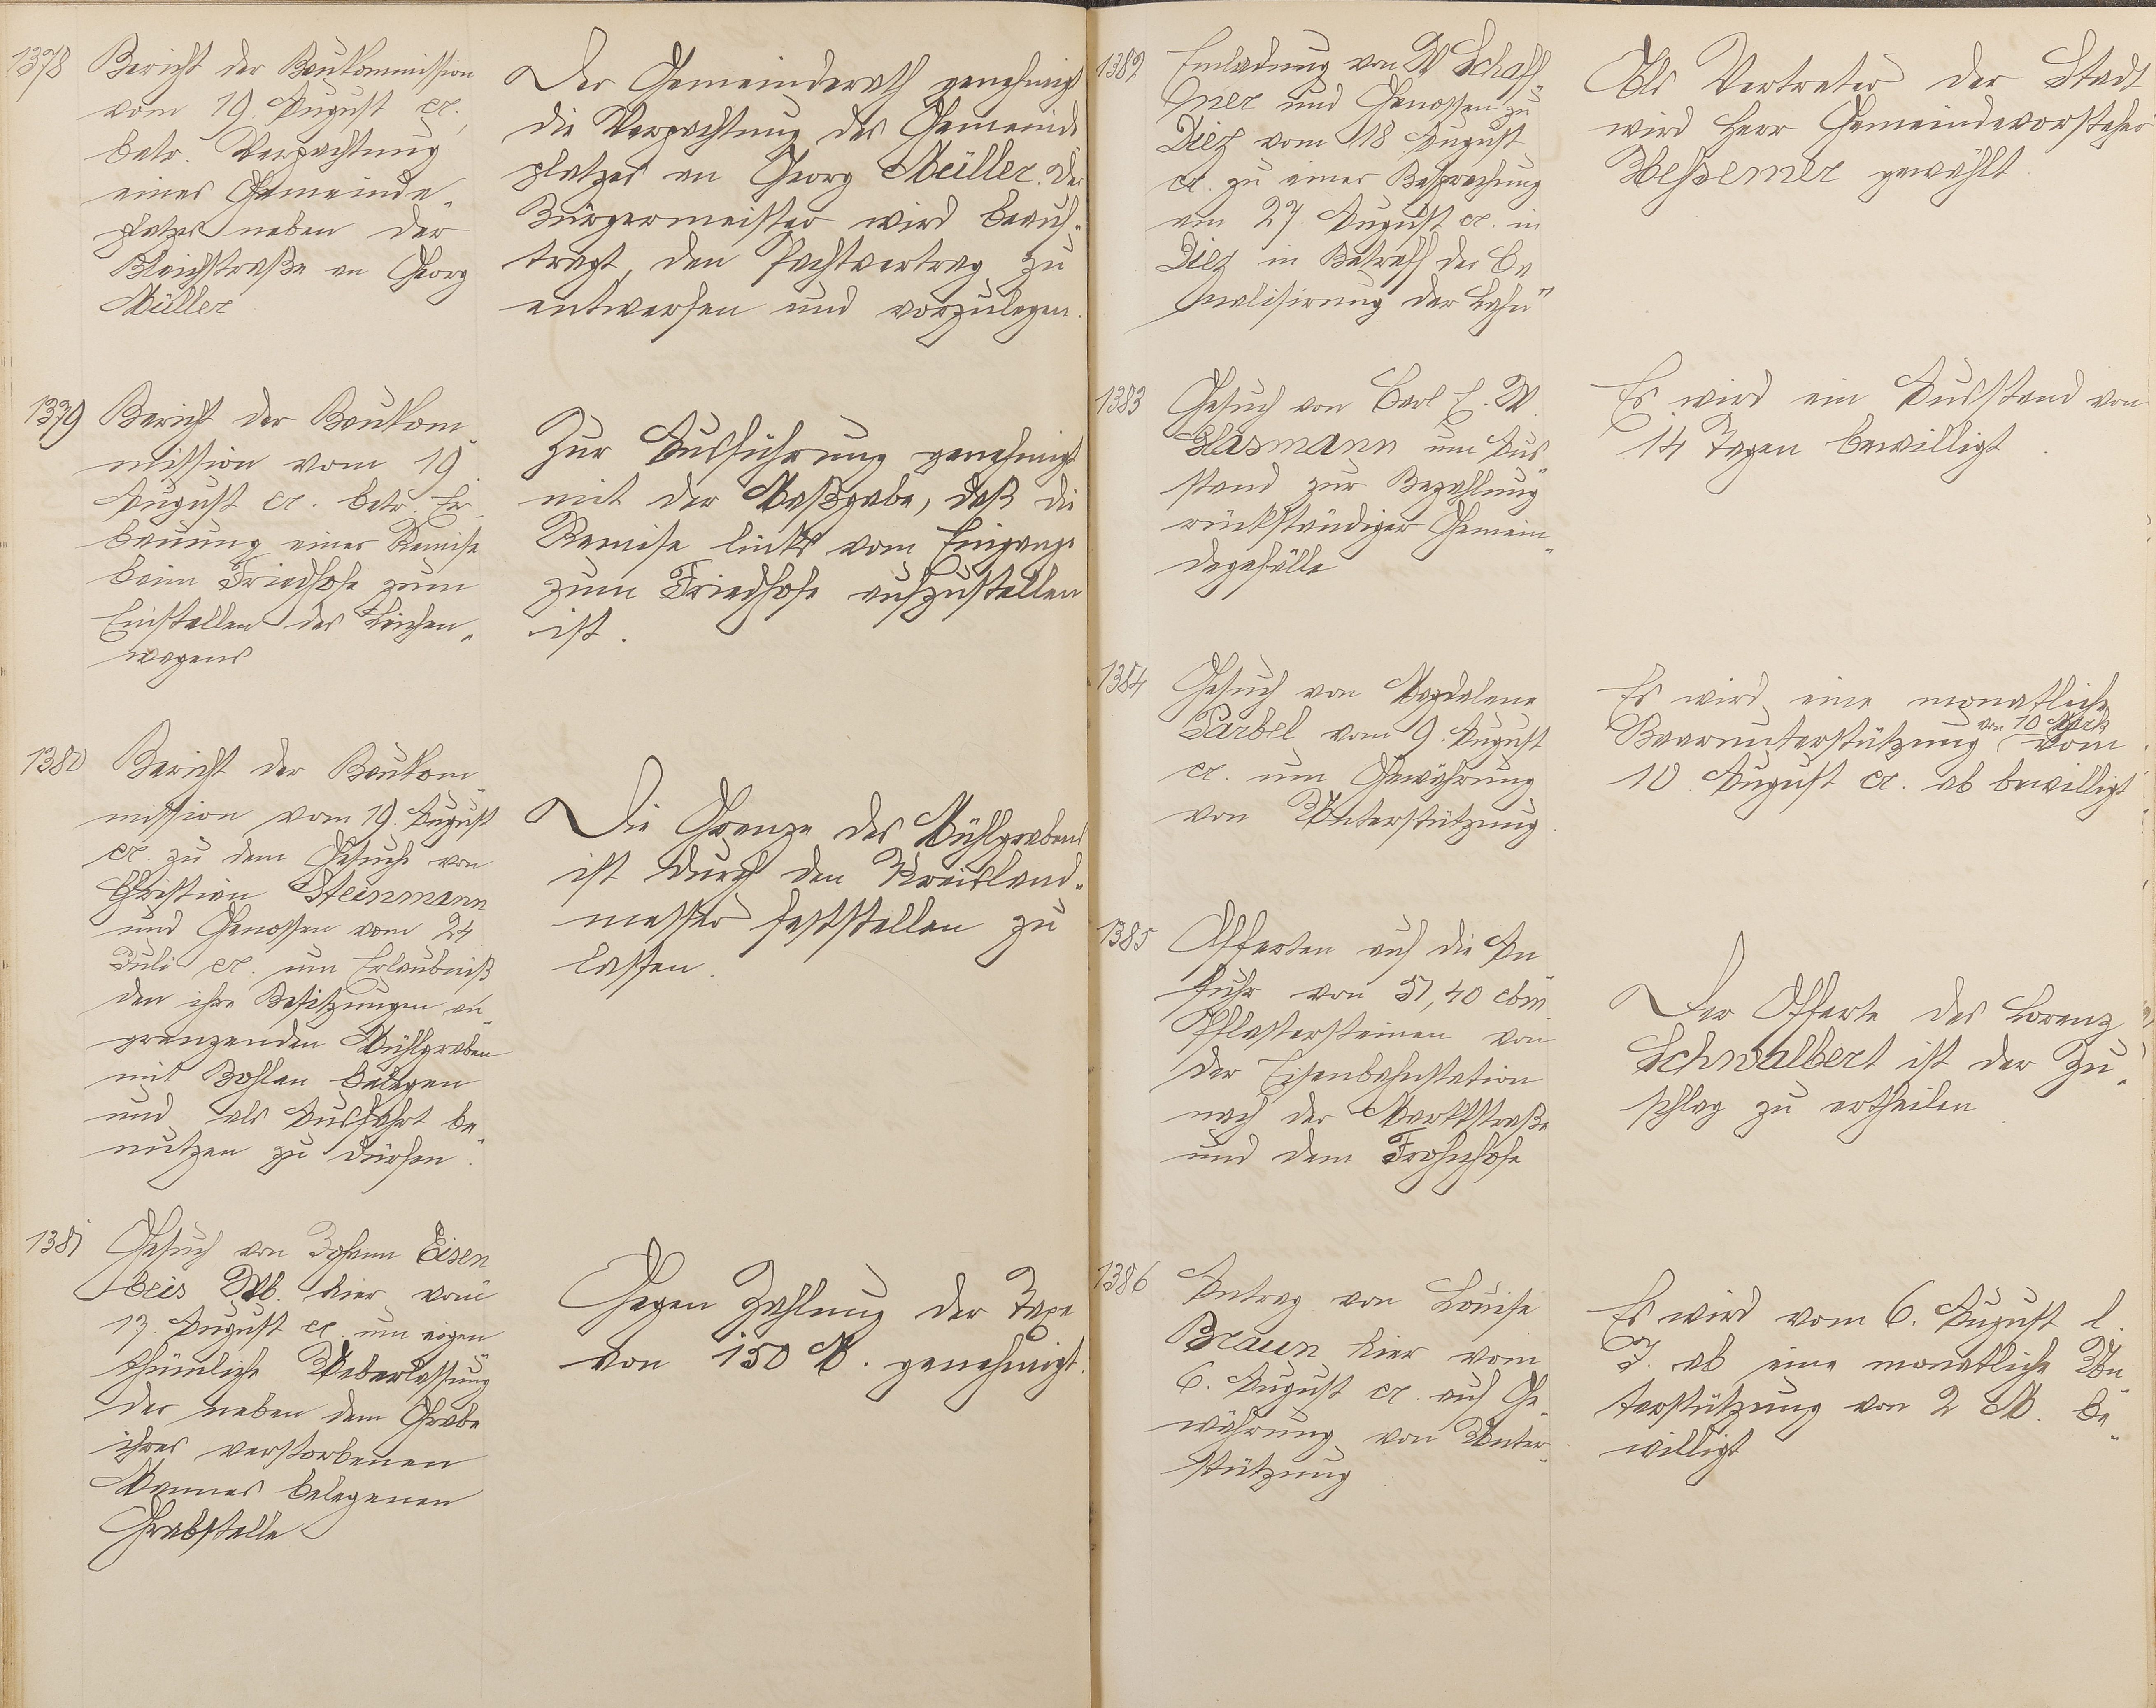 1378
Bericht der Baukommission
vom 19. August cr.,
betr. Verpachtung
eines Gemeinde-
platzes neben der
Bleichstraße an Georg
Müller
Der Gemeinderath genehmigt
die Verpachtung des Gemeinde
platzes an Georg Müller. Der
Bürgermeister wird beauf-
tragt, den Pachtvertrag zu
entwerfen und vorzulegen.
1379
Bericht der Baukom-
mission vom 19.
August cr. betr. Er-
bauung einer Remise
beim Friedhofe zum
Einstellen des Leichen-
wagens
Zur Ausführung genehmigt
mit der Maßgabe, daß die
Remise links vom Eingange
zum Friedhofe aufzustellen
ist.
1380
Bericht der Baukom-
mission vom 19. August
cr. zu dem Gesuche von
Christian Steinmann
und Genossen vom 24
Juli cr. um Erlaubniß
den ihre Besitzungen an-
grenzenden Mühlgraben
mit Bohlen belegen
und als Ausfahrt be-
nutzen zu dürfen.
Die Grenze des Mühlgrabens
ist durch den Kreisland-
messer feststellen zu
lassen.
1381
Gesuch von Johann Eisen
beis Wb. hier vom
13. August cr. um eigen
thümliche Ueberlassung
der neben dem Grabe
ihres verstorbenen
Mannes belegenen
Grabstelle
Gegen Zahlung der Taxe
von 150 M. genehmigt.
1382
Einladung von W Schaff-
ner und Genossen zu
Diez vom 18 August
cr. zu einer Besprechung
am 27. August cr. in
Diez in Betreff der Ca
nalisirung der Lahn
Als Vertreter der Stadt
wird Herr Gemeindevorsteher
Heßemer gewählt
1383
Gesuch von Carl E. W.
Glasmann um Aus
stand zur Bezahlung
rückständiger Gemein-
degefälle
Es wird ein Ausstand von
14 Tagen bewilligt.
1384
Gesuch von Magdalena
Parbel vom 9. August
cr. um Gewährung
von Unterstützung.
Es wird eine monatliche
von 10 Mark
Baarunterstützung vom
10 August cr. ab bewilligt
1385
Offerten auf die An
fuhr von 51,40 cbm
Pflastersteinen von
der Eisenbahnstation
nach der Marktstraße
und dem Frohnhofe
Der Offerte des Lorenz
Schwalbert ist der Zu-
schlag zu ertheilen.
1386
Antrag von Louise
Braun hier vom
6. August cr. auf Ge-
währung von Unter-
stützung
Es wird vom 6. August l.
J. ab eine monatliche Un
terstützung von 2 M. be-
willigt